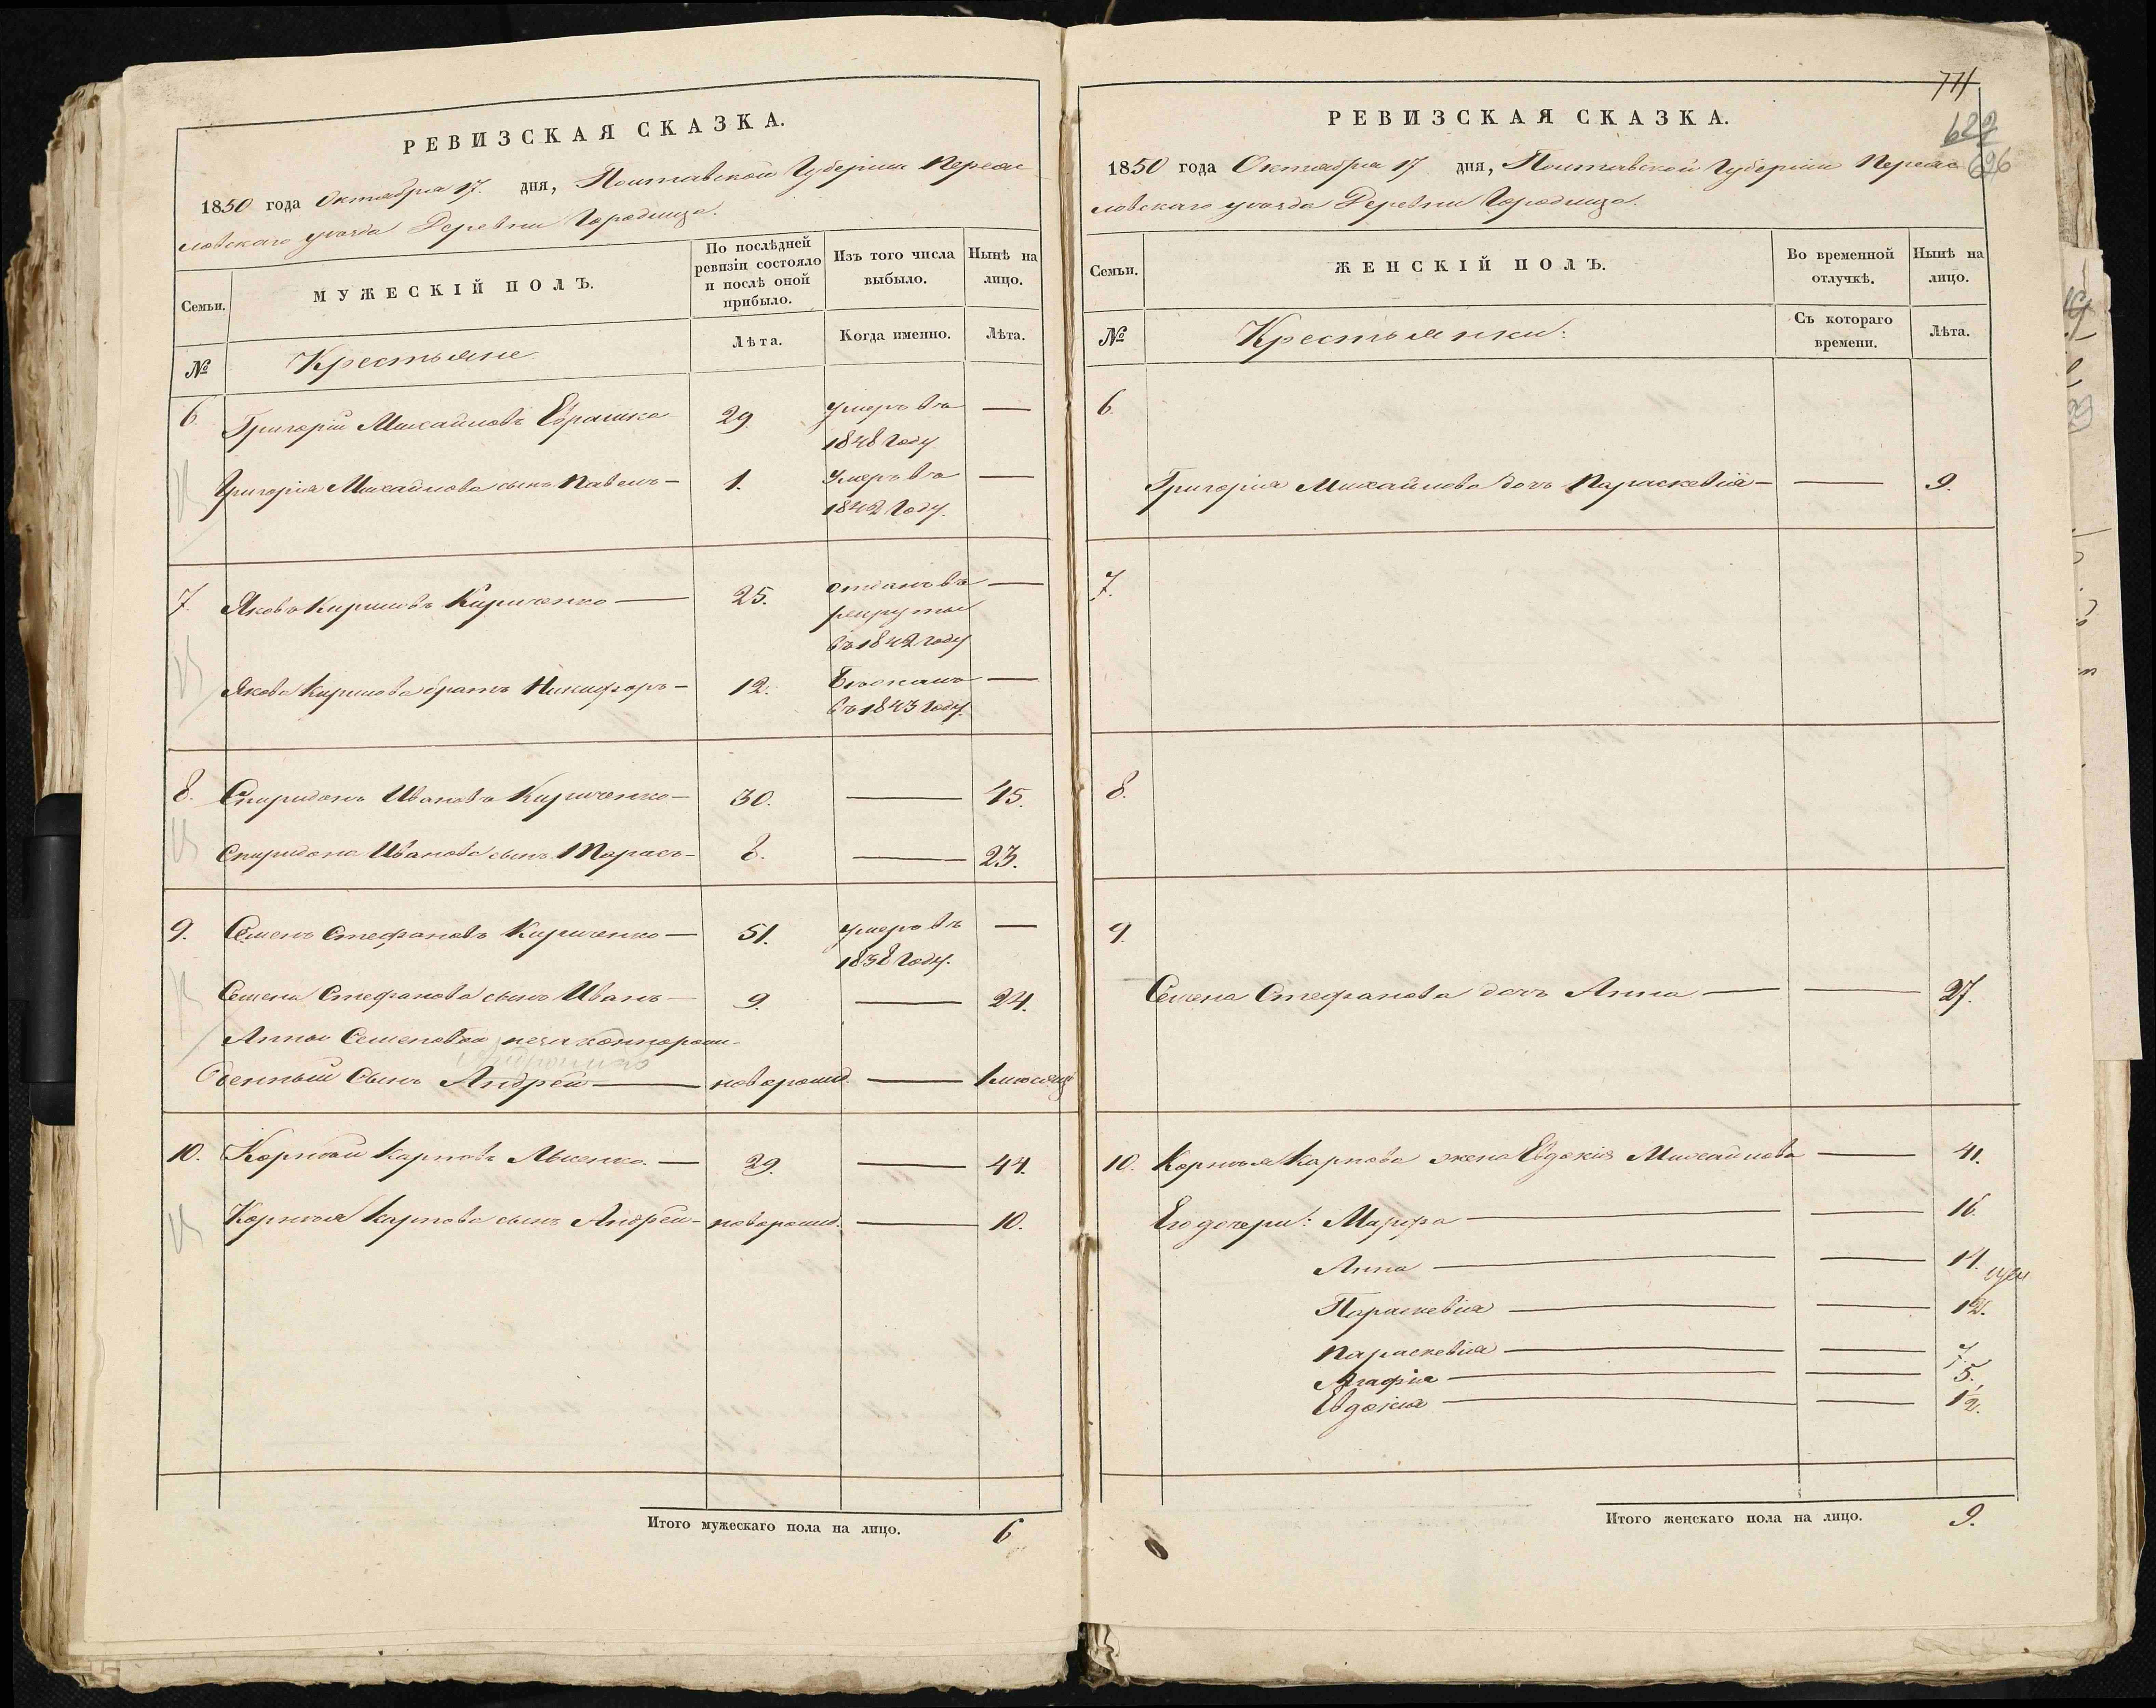 РЕВИЗСКАЯ СКАЗКА.
1850 года Октября 17. дня, Полтавской Губернiи Переяс
ловскаго уѣзда Деревни Городища.
Семьи.
МУЖЕСКІЙ ПОЛЪ.
По послѣдней
ревизіи состояло
и послѣ оной
прибыло.
Изъ того числа
выбыло.
Нынѣ на
лицо.
№
Крестьяне
Лѣта.
Когда именно.
Лѣта.
6. Григорій Михайловъ 29. умеръ въ —
1848 Году.
Григорія Михайлова сынъ Павелъ — 1. Умеръ въ —
1842 Году.
7. Яковъ Кириловъ Кириченко — 25. отданъ въ —
рекруты
въ 1842 году
Якова Кирилова братъ Никифоръ — 12. Бѣжалъ —
въ 1843 Году.
8. Спиридонъ Ивановъ Кириченко — 30. — 45.
Спиридона Иванова сынъ Тарасъ — 8. — 23.
9. Семенъ Стефановъ Кириченко — 51. умеръ въ —
1838 Году.
Семена Стефанова сынъ Иванъ — 9. — 24.
Анны Семеновой незаконнорож-
денный Сынъ Андрей — новорожд. — 1 мѣсяцъ
10. Корнѣй Карповъ Лысенко — 29. — 44.
Корнѣя Карпова сынъ Андрей — новорожд. — 10.
Итого мужескаго пола на лицо. 6
711
622
696
РЕВИЗСКАЯ СКАЗКА.
1850 года Октября 17 дня, Полтавской Губерніи Переяс
ловскаго уѣзда Деревни Городища.
Семьи.
ЖЕНСКІЙ ПОЛЪ.
Во временной
отлучкѣ.
Нынѣ на
лицо.
№
Крестьянки:
Съ котораго
времени.
Лѣта.
6.
Григорія Михайлова дочь Параскевія — — 9.
7.
8.
9.
Семена Стефанова дочь Анна — — 27.
10. Корнѣя Карпова жена Евдокія Михайлова — 41.
Его дочери: Марфа — — 16.
Анна — — 14.
Параскевія — — 12.
Параскевія — — 7.
Агафія — — 5.
Евдокія — — 1/2.
Итого женскаго пола на лицо. 9.